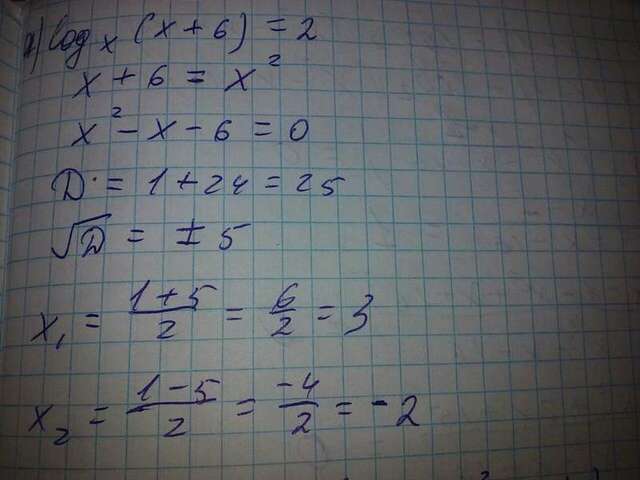 а) log_x (x + 6) = 2
x + 6 = x²
x² - x - 6 = 0
D = 1 + 24 = 25
√D = ± 5
x₁ = (1 + 5)/2 = 6/2 = 3
x₂ = (1 - 5)/2 = -4/2 = -2